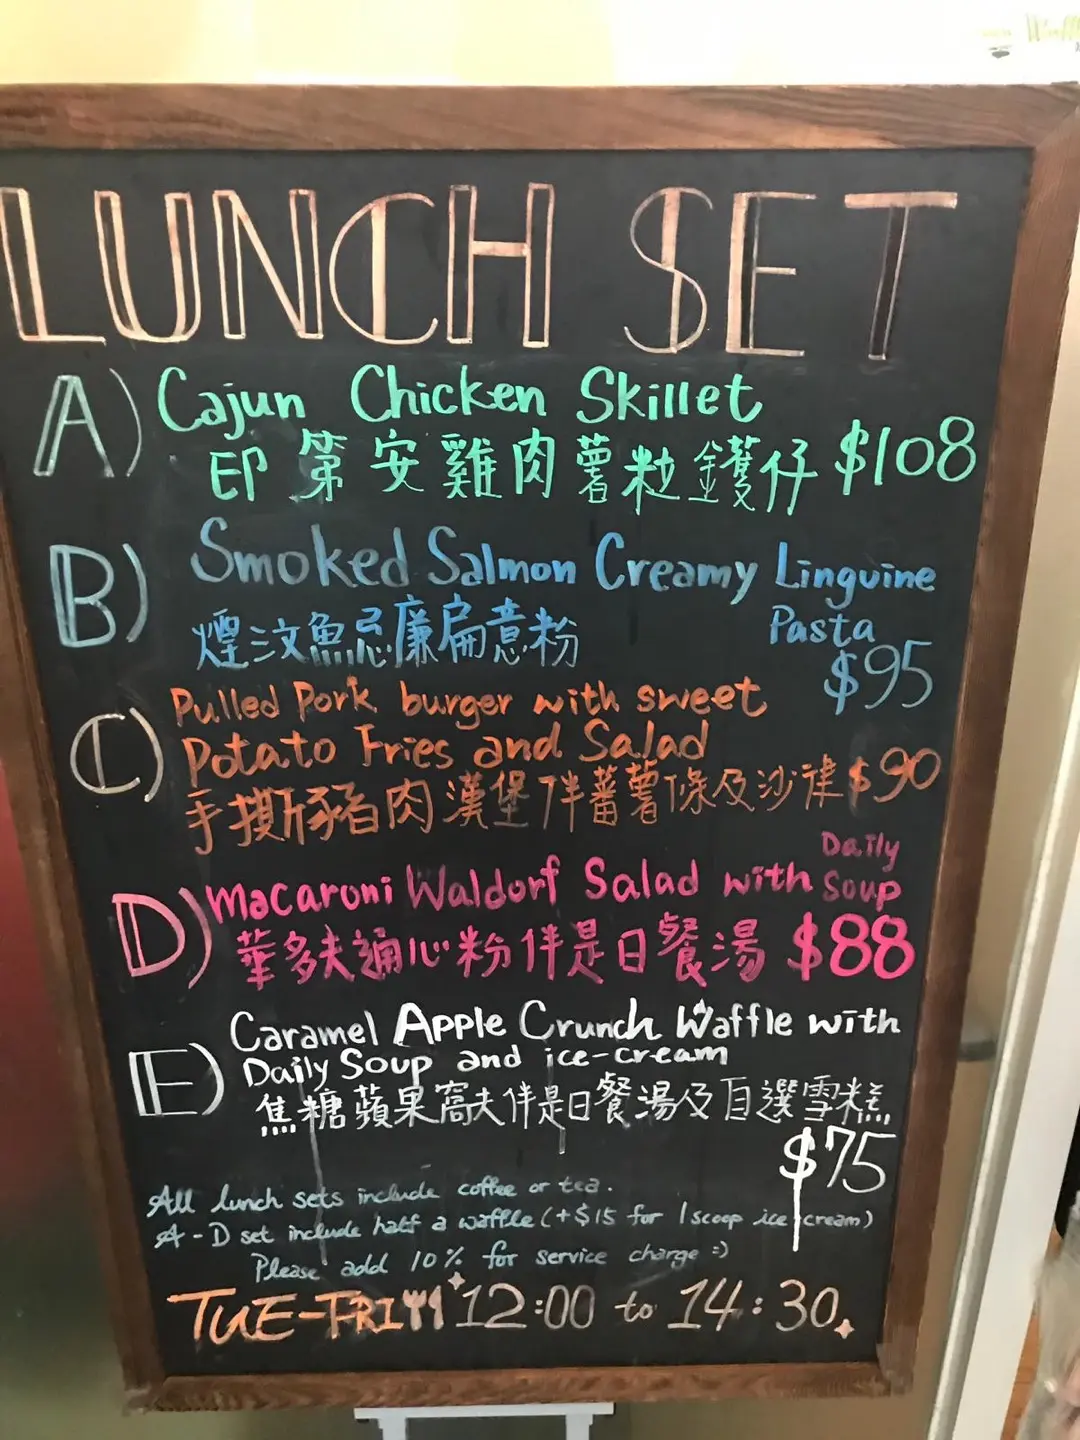 LUNCH SET
A) Cajun Chicken Skillet
印第安雞肉薯粒鑊仔 $108
B) Smoked Salmon Creamy Linguine
Pasta
煙汶魚忌廉扁意粉
$95
C) Pulled Pork burger with sweet
Potato Fries and Salad
手撕豬肉漢堡伴蕃薯條及沙律 $90
D) Macaroni Waldorf Salad with Daily
Soup
華多夫通心粉伴是日餐湯 $88
E) Caramel Apple Crunch Waffle with
Daily Soup and ice-cream
焦糖蘋果窩夫伴是日餐湯及自選雪糕
$75
All lunch sets include coffee or tea.
A-D set include half a waffle (+$15 for 1 scoop ice cream)
Please add 10% for service charge :)
TUE-FRI 12:00 to 14:30